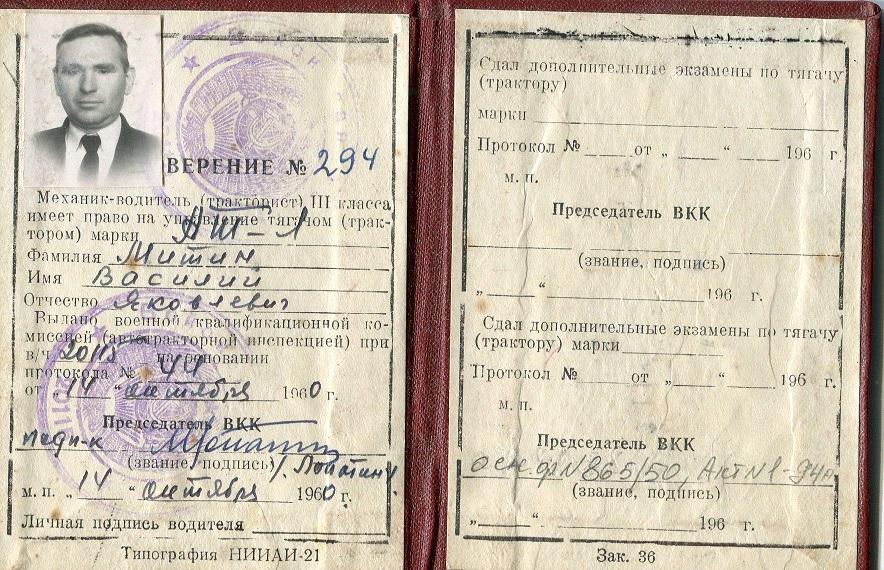 ВЕРЕНИЕ № 294
Механик-водитель (тракторист) III класса
имеет право на управление тягачом (трак-
тором) марки АТ-Л
Фамилия Митин
Имя Василий
Отчество Яковлевич
Выдано военной квалификационной ко-
миссией (автотракторной инспекцией) при
в/ч 20115 на основании
протокола № 44
от „ 14 “ октября 1960 г.
Председатель ВКК
подп-к
(звание, подпись) /Лопатин/
м. п. „ 14 “ октября 1960 г.
Личная подпись водителя
Типография НИИАИ-21
Сдал дополнительные экзамены по тягачу
(трактору)
марки
Протокол № от „ “ 196 г.
м. п.
Председатель ВКК
(звание, подпись)
„ “ 196 г.
Сдал дополнительные экзамены по тягачу
(трактору) марки
Протокол № от „ “ 196 г.
м. п.
Председатель ВКК
осн. ф N865/50, Акт N1-94
(звание, подпись)
„ “ 196 г.
Зак. 36